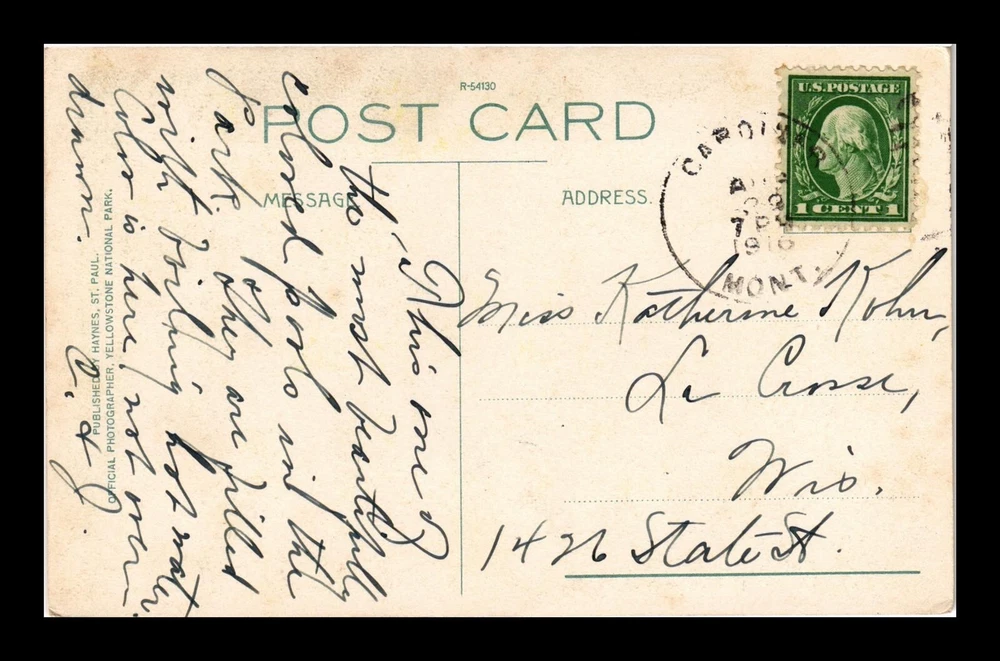 R-54130
POST CARD
MESSAGE
ADDRESS.
U.S. POSTAGE
1 CENT 1
MONT.
7 PM
1916
This one of
the most beautifully
colored pools in the
Park. They are filled
with boiling hot water.
Color is here not over-
drawn.
PUBLISHED BY HAYNES, ST. PAUL.
OFFICIAL PHOTOGRAPHER, YELLOWSTONE NATIONAL PARK.
Miss Katherine Kohn,
La Crosse,
Wis.
1426 State St.